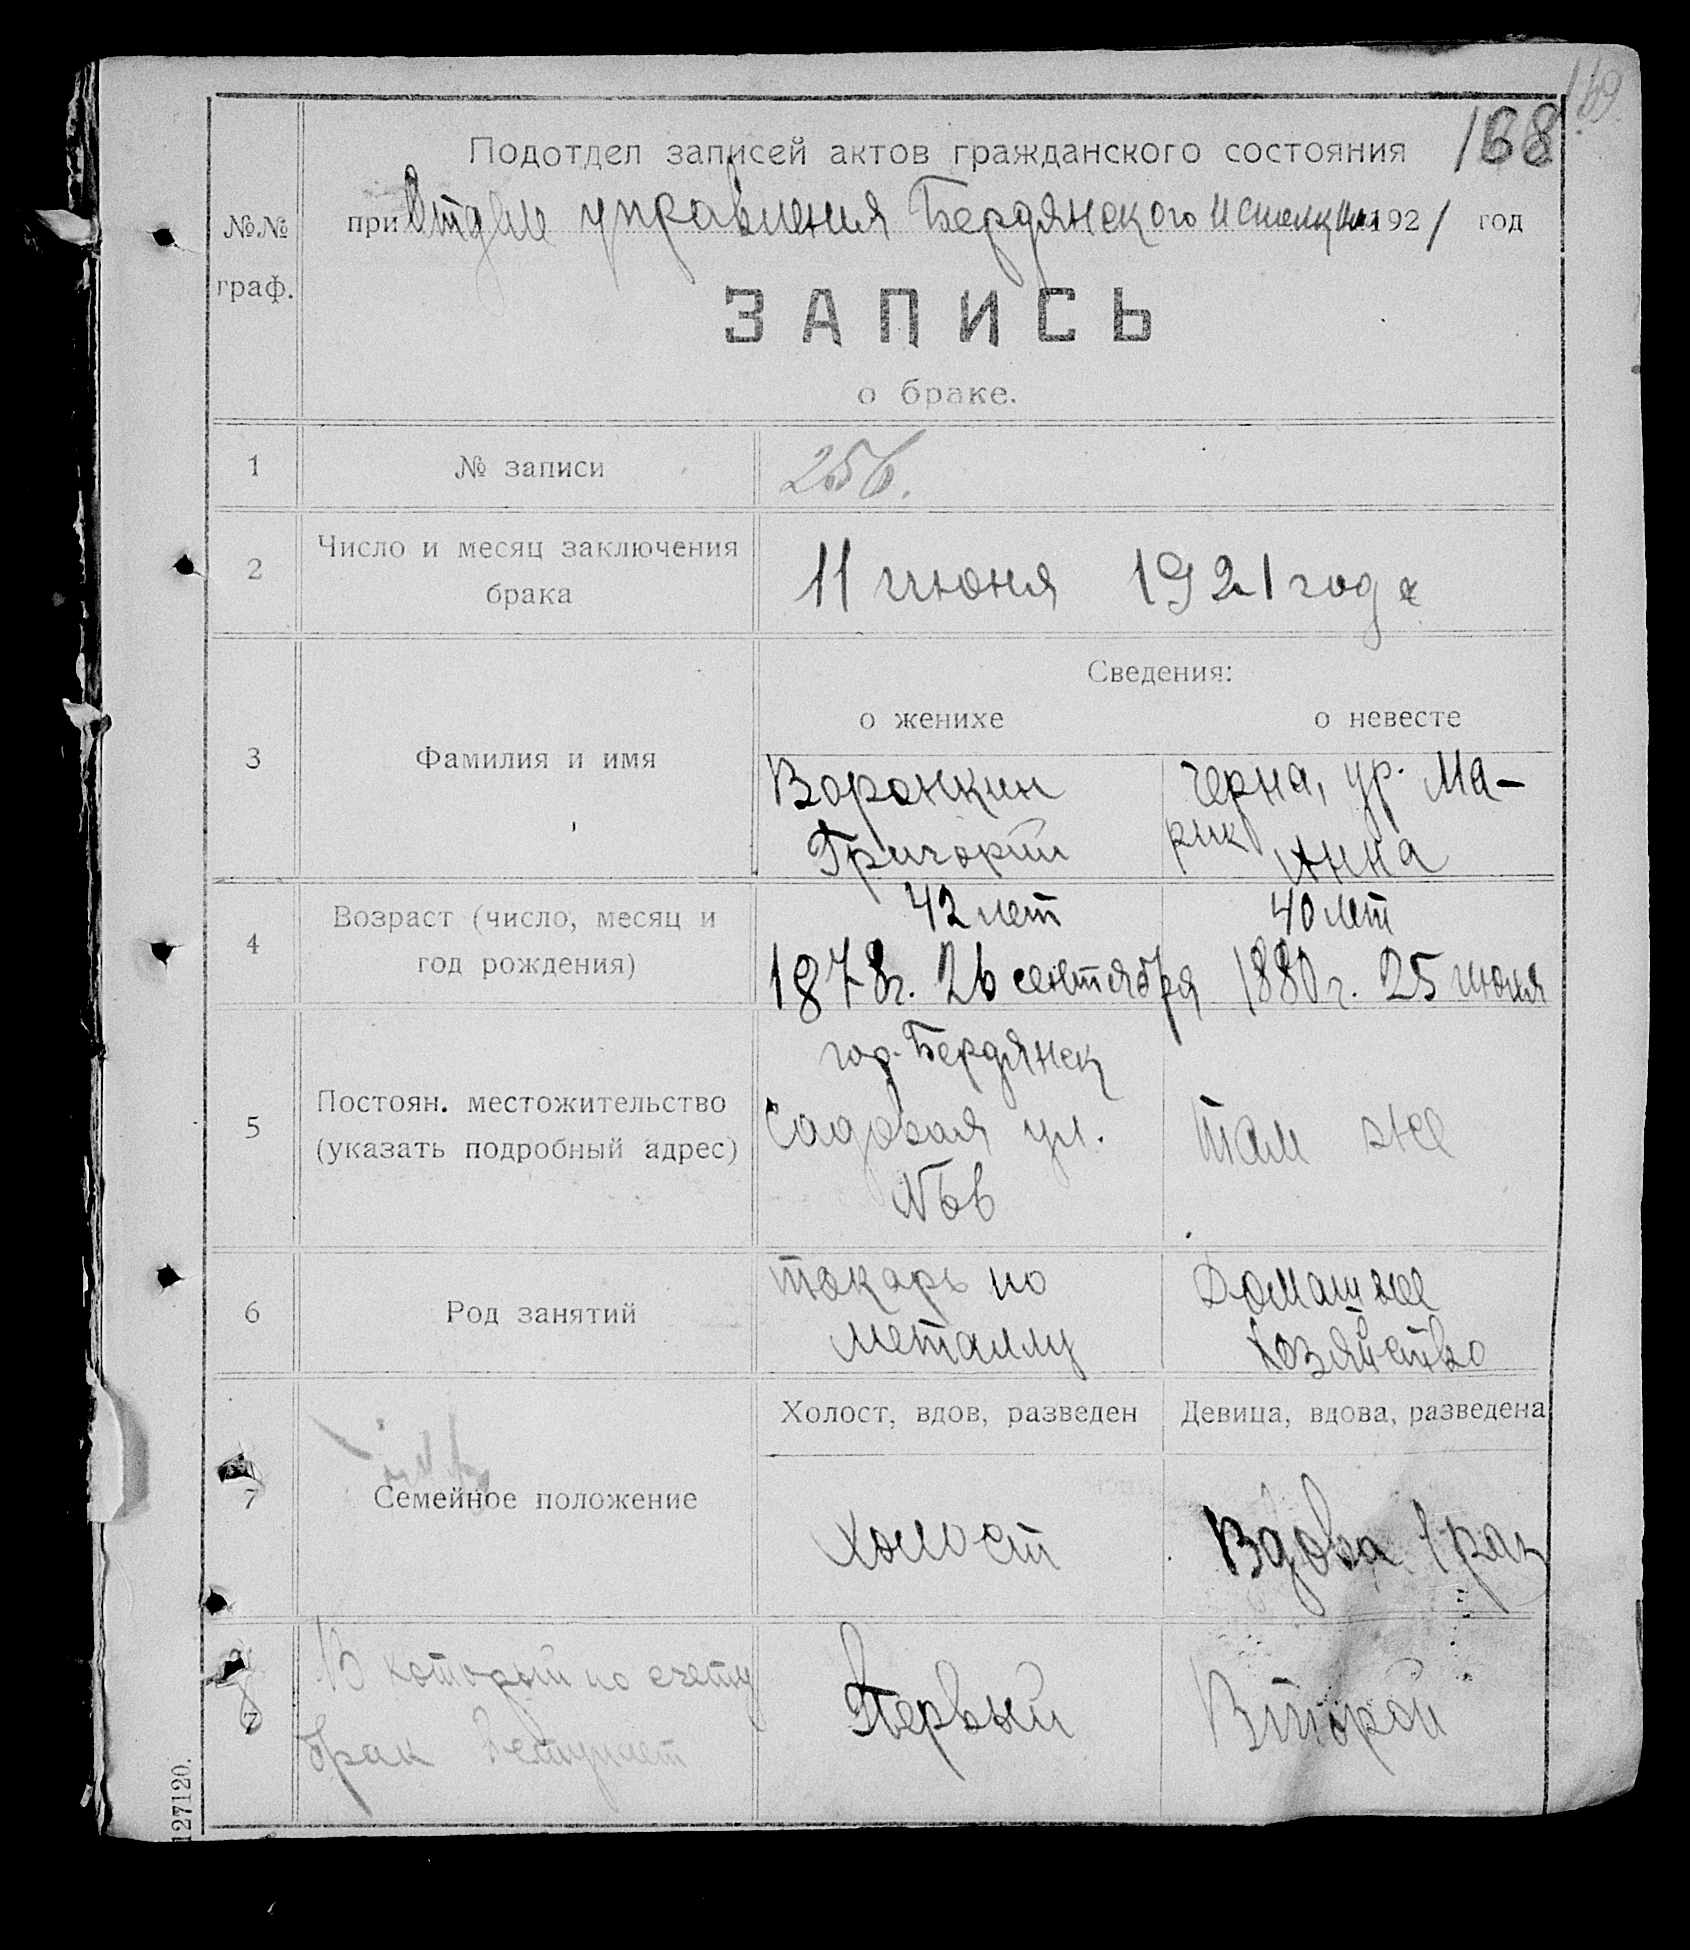 169
168
Подотдел записей актов гражданского состояния
№№ граф.
при Отделе управления Бердянского Исполкома 1921 год
ЗАПИСЬ
о браке.
1 № записи 256.
2 Число и месяц заключения брака
11 июня 1921 года
Сведения:
о женихе о невесте
3 Фамилия и имя
Воронкин Черна, ур. Ма-
Григорий рик Анна
4 Возраст (число, месяц и год рождения)
42 лет 40 лет
1878г. 26 сентября 1880г. 25 июня
5 Постоян. местожительство (указать подробный адрес)
гор. Бердянск
Садовая ул. Там же
6 Род занятий
токарь по Домашнее
металлу хозяйство
Холост, вдов, разведен Девица, вдова, разведена
7 Семейное положение
холост Вдова 1 раз
8 В который по счету
брак вступает
Первый Второй
127120.